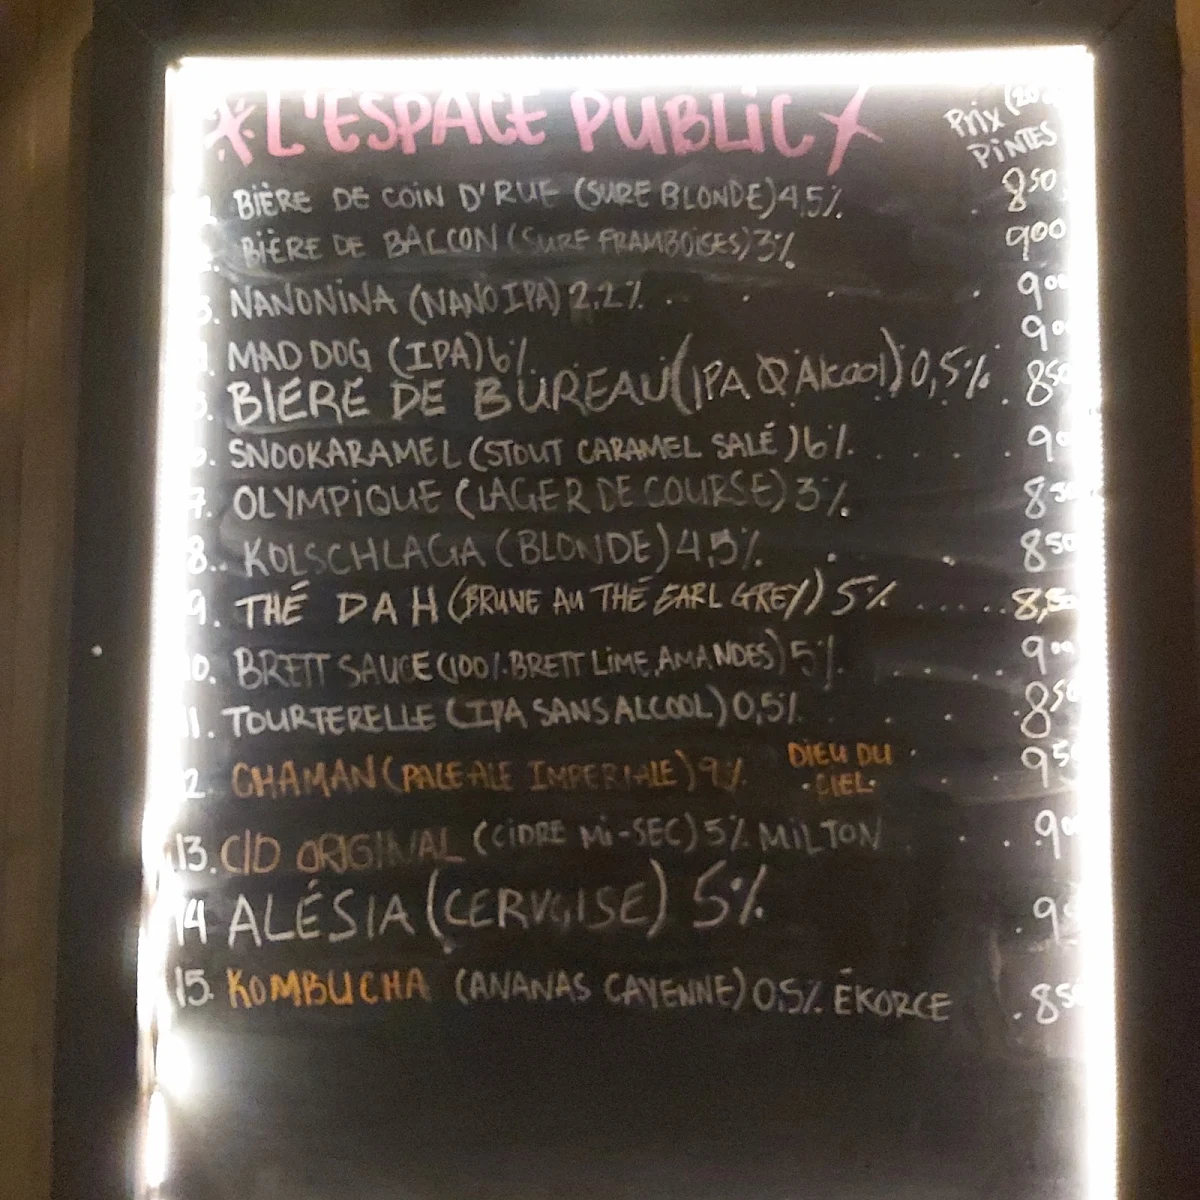 L'ESPACE PUBLIC
Prix (20
PINTES
BIÈRE DE COIN D'RUE (SURE BLONDE) 4,5% . 8 50
BIÈRE DE BALCON (SURE FRAMBOISES) 3% 9 00
3. NANONINA (NANO IPA) 2,2% .. . . . 9 00
MAD DOG (IPA) 6% 9 00
BIÈRE DE BUREAU (IPA Ø Alcool) 0,5% . 8 50
6. SNOOKARAMEL (STOUT CARAMEL SALÉ) 6% . . . . . 9 00
7. OLYMPIQUE (LAGER DE COURSE) 3% 8 50
8. KOLSCHLAGA (BLONDE) 4,5% . . 8 50
9. THÉ DAH (BRUNE AU THÉ EARL GREY) 5% ...... 8,50
10. BRETT SAUCE (100% BRETT LIME, AMANDES) 5% . . . . 9 00
11. TOURTERELLE (IPA SANS ALCOOL) 0,5% . . . 8 50
12. CHAMAN (PALE ALE IMPERIALE) 9% DIEU DU CIEL . . 9 50
13. CID ORIGINAL (CIDRE Mi-SEC) 5% MILTON . . . 9 00
14 ALÉSIA (CERVOISE) 5% . 9 5
15. KOMBUCHA (ANANAS CAYENNE) 0,5% ÉKORCE . 8 50